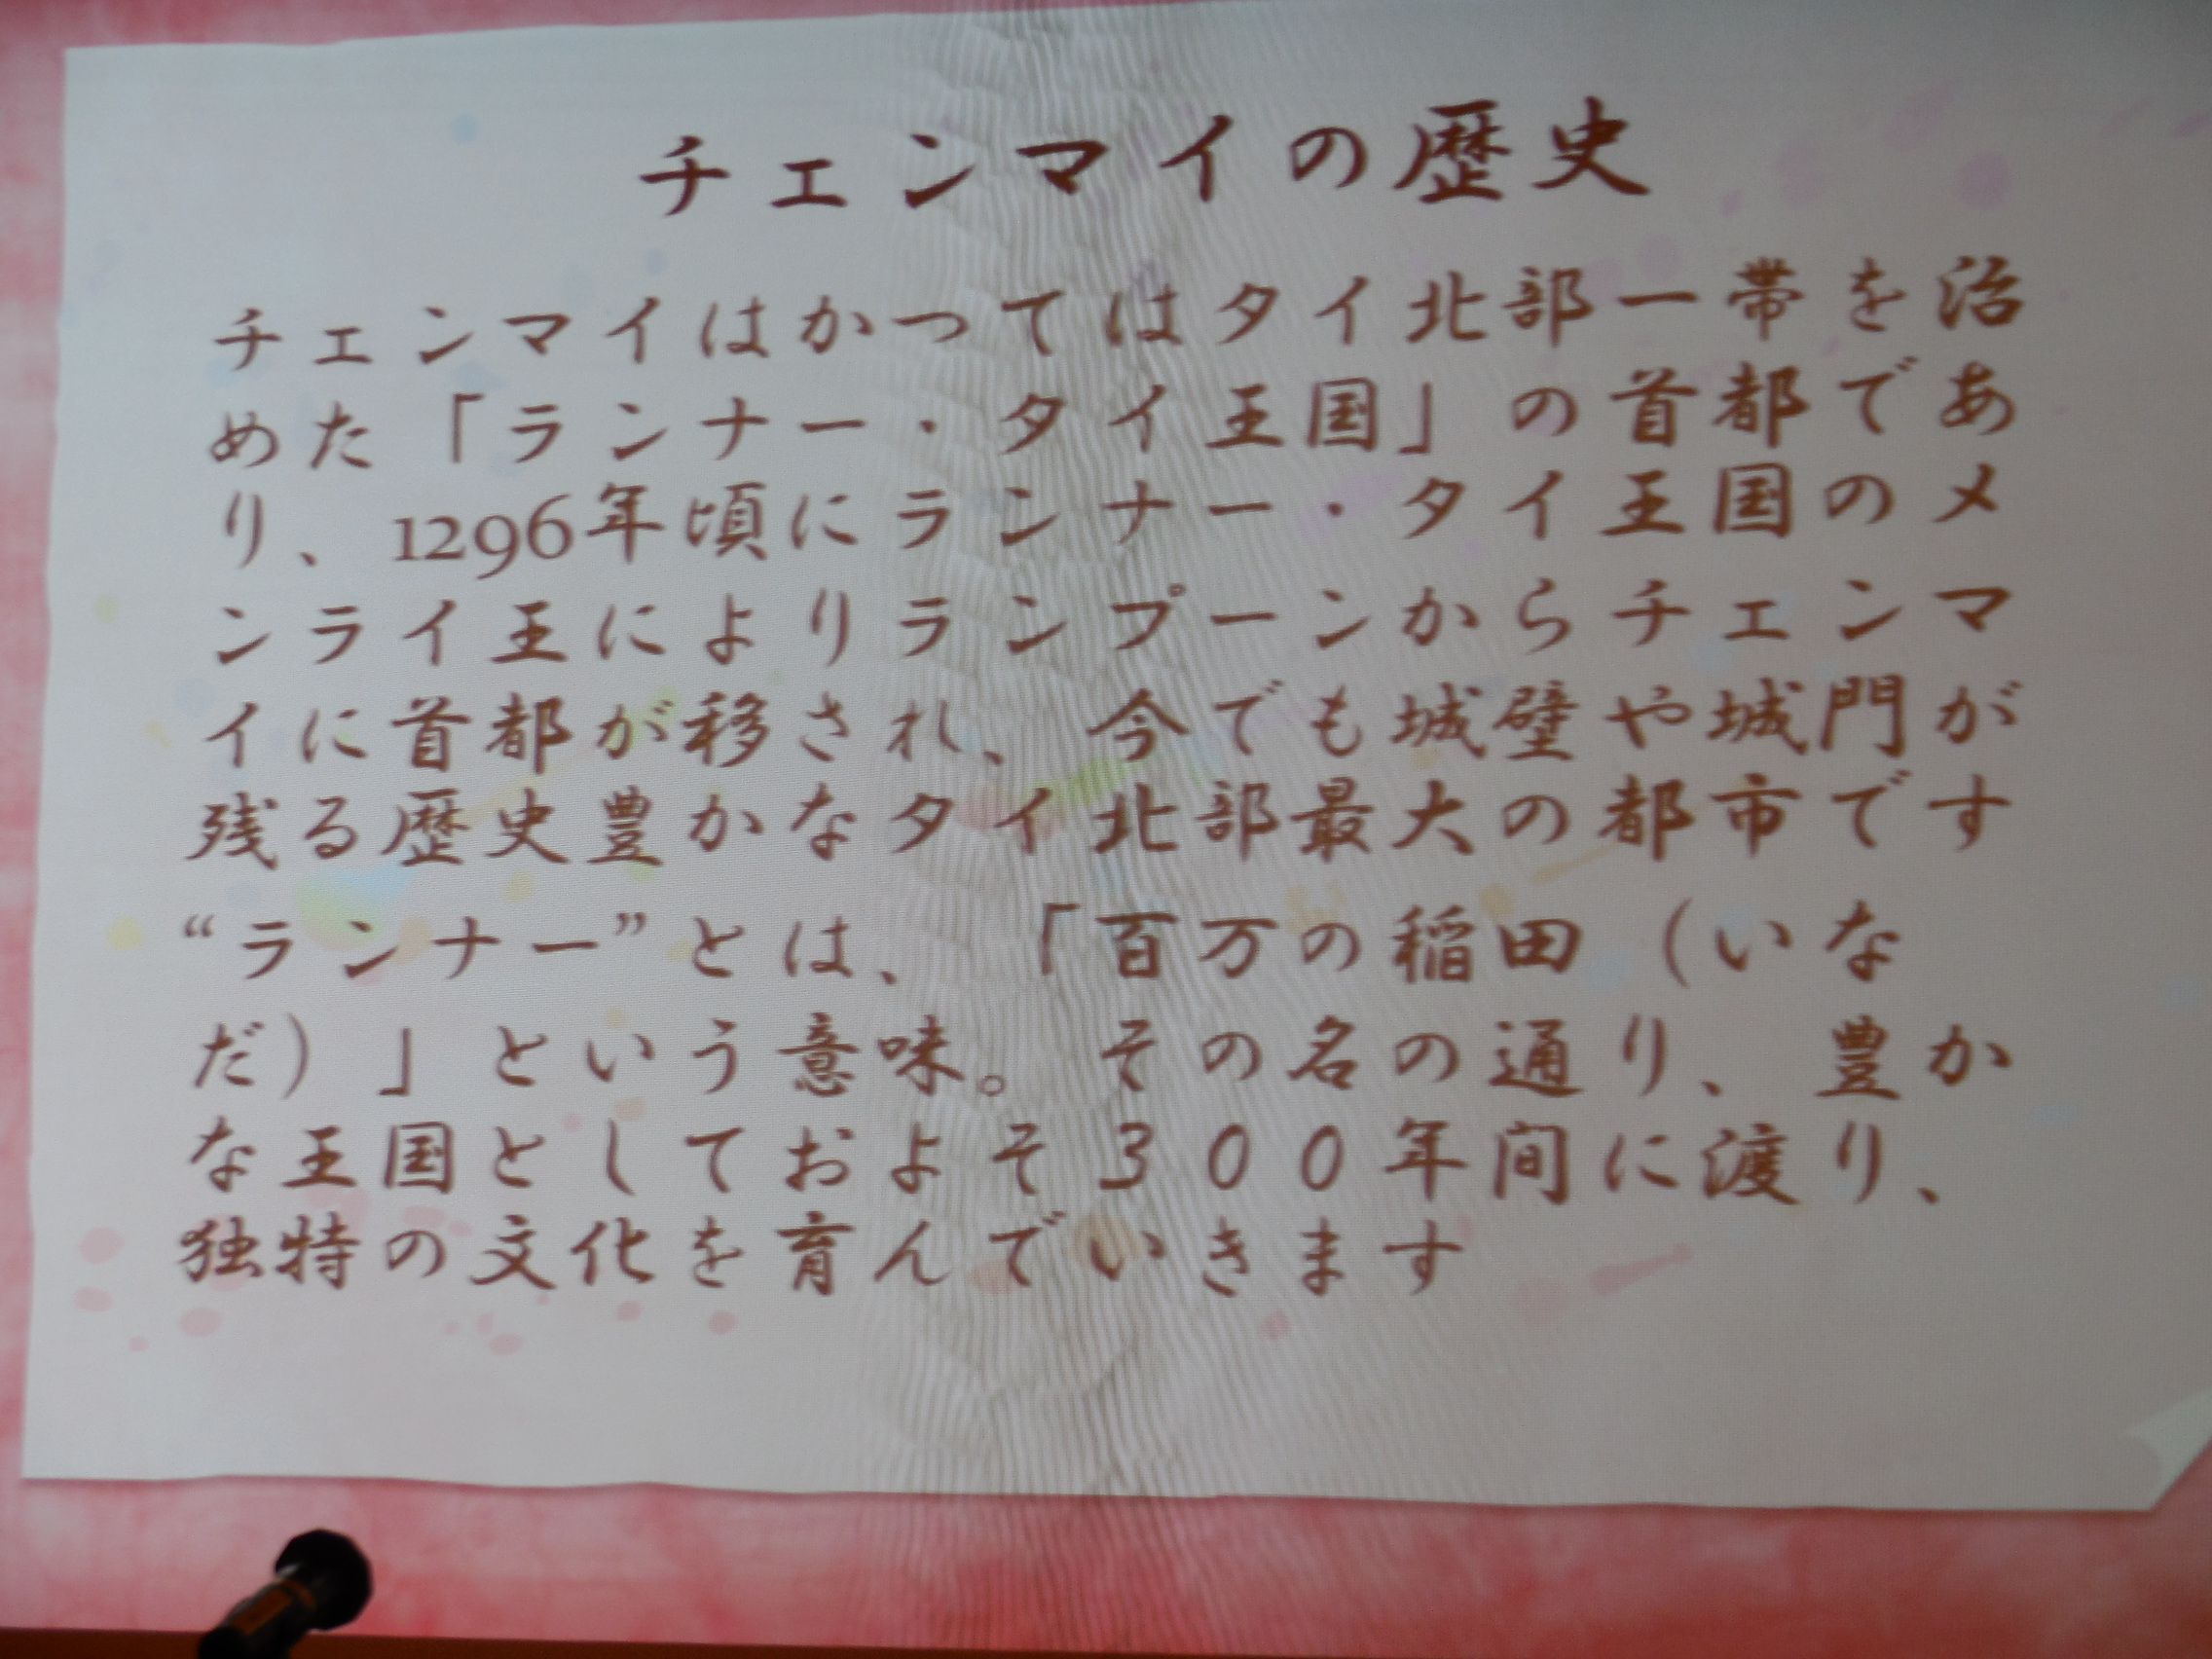 チェンマイの歴史
チェンマイはかつてはタイ北部一帯を治
めた「ランナー・タイ王国」の首都であ
り、1296年頃にランナー・タイ王国のメ
ンライ王によりランプーンからチェンマ
イに首都が移され、今でも城壁や城門が
残る歴史豊かなタイ北部最大の都市です
“ランナー”とは、「百万の稲田（いな
だ）」という意味。その名の通り、豊か
な王国としておよそ３００年間に渡り、
独特の文化を育んでいきます